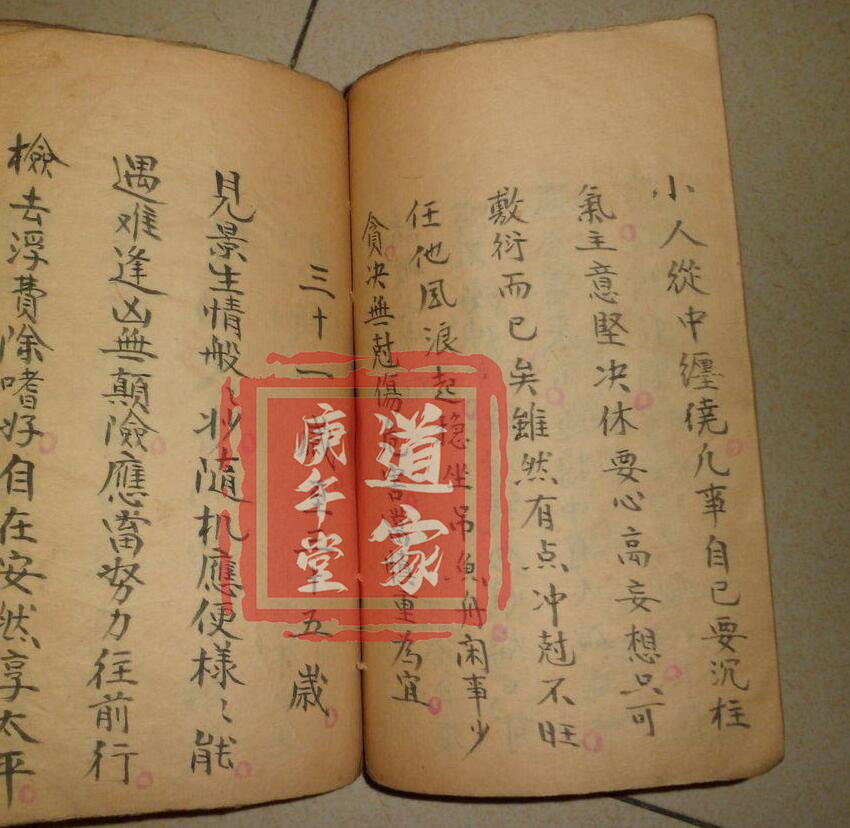 小人從中纏繞凡事自己要沉柱
氣主意堅决休要心高妄想只可
敷衍而已矣雖然有点冲尅不旺
任他風浪起穩坐吊魚舟闲事少
貪决無尅傷害重為宜
三十一歲至三十五歲
見景生情般〻妙随机應便樣〻能
遇难逢凶無顛險應當努力往前行
檢去浮費除嗜好自在安然享太平
道家
庚午堂